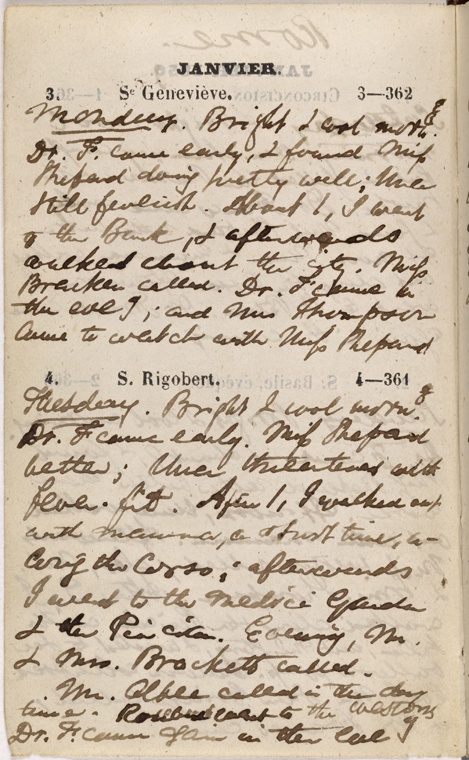 Rome.
JANVIER.
3. Ste Geneviève. 3—362
Monday. Bright & cool morng.
Dr. F. came early, & found Miss
Shepard doing pretty well; Una
still feverish. About 1, I went
to the Bank, & afterwards
walked about the city. Miss
Bracken called. Dr. F came in
the eveg; and Mrs Thompson
came to watch with Miss Shepard
4. S. Rigobert. 4—361
Tuesday. Bright & cool morng.
Dr. F came early. Miss Shepard
better; Una threatened with
fever-fit. After 1, I walked out
with mamma, a short time, a-
long the Corso; afterwards
I went to the Medici Garden
& the Pincian. Evening, Mr.
& Mrs. Brockett called.
Mr. called in the day
time. Rosebud went to the
Dr. F. came in the eveg